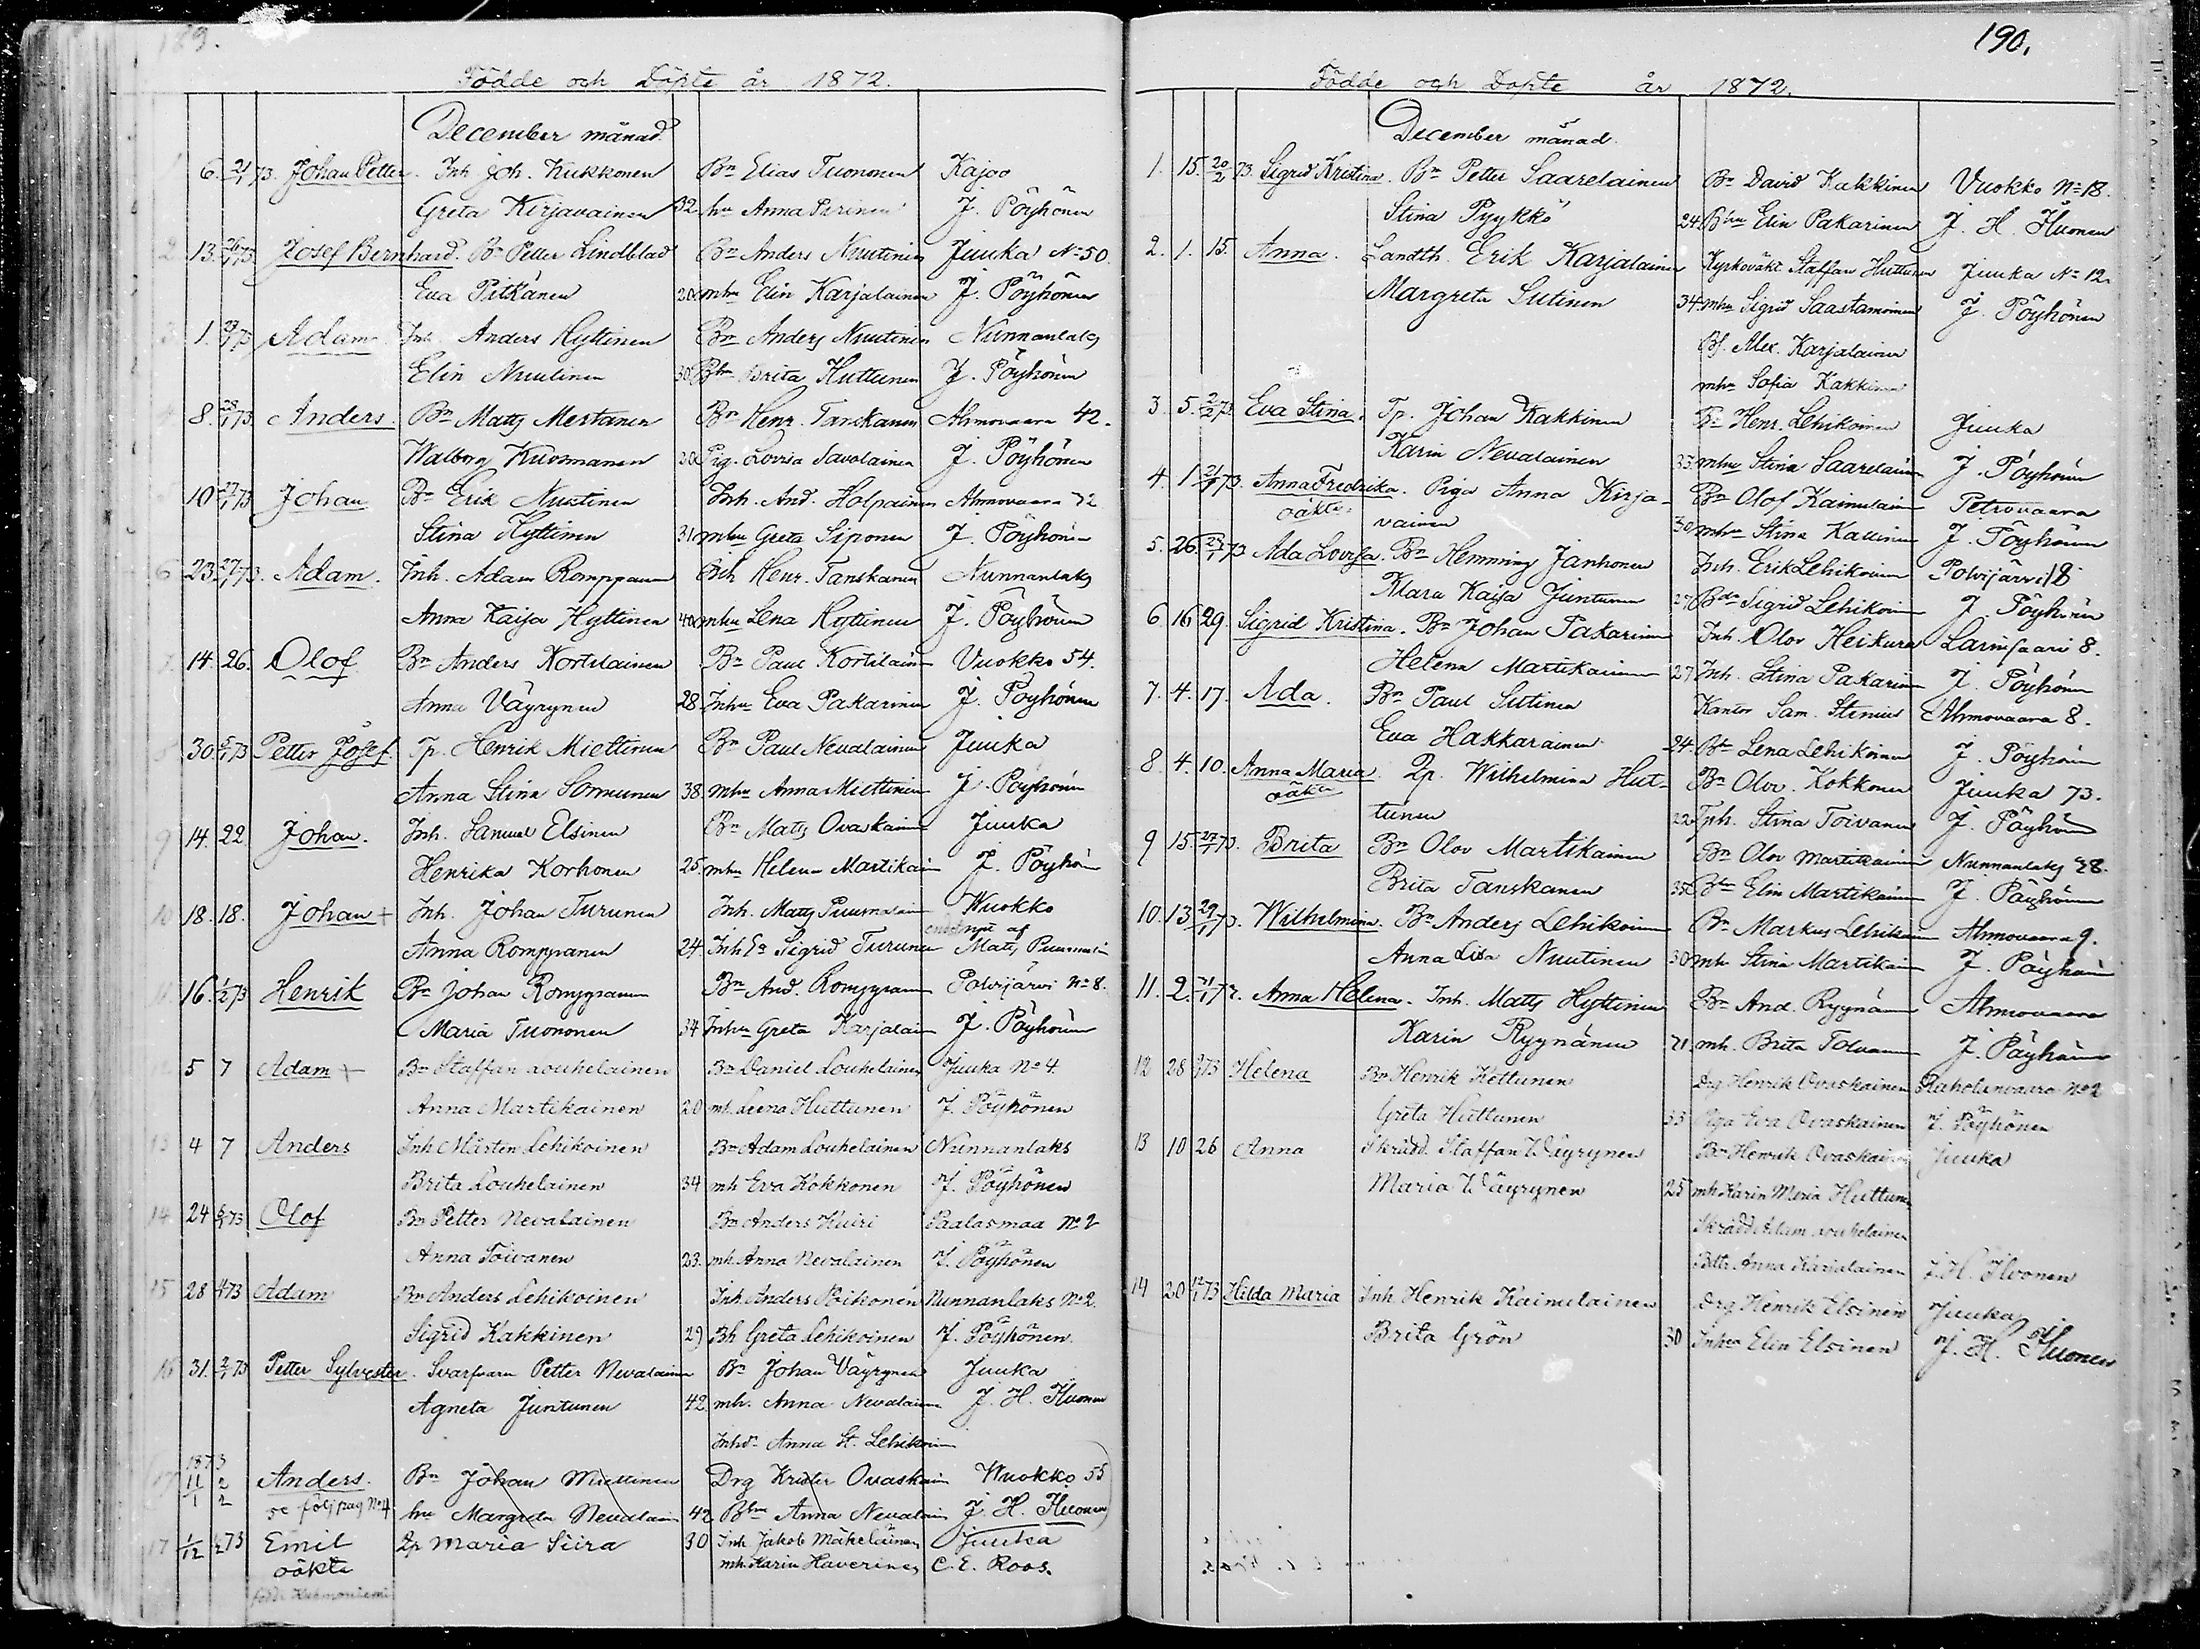 189.
Födde och Döpte år 1872.
December månad
6. 21/1 73. Johan Petter. Inh. Joh. Kukkonen Bn Elias Tuononen Kajoo
Greta Kirjavainen 32 hu Anna Pirinen J. Pöyhönen
2 13. 26/1 73 Josef Bernhard. Bn Petter Lindblad Bn Anders Nuutinen Juuka No 50
Eva Pitkänen 20 mhu Elin Karjalainen J. Pöyhönen
3 1. 73 Adam Inh. Anders Hyttinen Bn Anders Nuutinen Nunnanlaks
Elin Nuutinen 30 Bhu Brita Huttunen J. Pöyhönen
8. 28/1 73. Anders. Bn Matts Mertanen Bn Henr. Tanskanen Ahmovaara 42.
Walborg Kuosmanen 20 Pig. Lovisa Savolainen J. Pöyhönen
10 27/1 73 Johan Bn Erik Nuutinen Inh. And. Holpainen Ahmovaara 72
Stina Hyttinen 31 mhu Greta Siponen J. Pöyhönen
6 23. 27/1 73. Adam. Inh. Adam Romppanen Inh Henr. Tanskanen Nunnanlaks
Anna Kaisa Hyttinen 40 mhu Lena Hyttinen J. Pöyhönen
7 14. 26. Olof Bn Anders Kortelainen Bn Paul Kortelain Vuokko 54.
Anna Väyrynen 28. Inhu Eva Pakarinen J. Pöyhönen
8 30. 5/1 73 Petter Josef. Tp. Henrik Miettinen Bn Paul Nevalainen Juuka
Anna Stina Sormunen 38. mhu Anna Miettinen J. Pöyhönen
9 14. 22 Johan. Inh. Samuel Elsinen Bn Matts Ovaskainen Juuka
Henrika Korhonen 25. mhu Helena Martikain J. Pöyhön
10 18. 18. Johan + Inh. Johan Turunen Inh. Matts Puumalain Wuokko
Anna Romppanen 24. Inh Ea Sigrid Turunen af Matts Puumalain
11 16. 1/2 73 Henrik Bn Johan Romppanen Bn And. Romppanen Polvijärvi No 8.
Maria Tuononen 34 Inhu Greta Karjalain J. Pöyhönen
12 5 7 Adam + Bn Staffan Louhelainen Bn Daniel Louhelainen Juuka No 4
Anna Martikainen 20 mh. Leena Huttunen J. Pöyhönen
13 4 7 Anders Inh Mårten Lehikoinen Bn Adam Louhelainen Nunnanlaks
Brita Louhelainen 34 mh Eva Kokkonen J. Pöyhönen
14 24 6/1 73 Olof Bn Petter Nevalainen Bn Anders Kuiri Paalasmaa No 2
Anna Toivanen 23. mh. Anna Nevalainen J. Pöyhönen
15 28 73 Adam Bn Anders Lehikoinen Inh. Anders Poikonen Nunnanlaks No 2.
Sigrid Kakkinen 29 Bh Greta Lehikoinen J. Pöyhönen.
16 31. 2/1 73 Petter Sylvester. Svarfvarn Petter Nevalainen Bn Johan Väyrynen Juuka
Agneta Juntunen 42. mh. Anna Nevalainen J. H. Iluonen
Inhdr Anna St. Lehikoin
1873
11/1 2/2 Anders. Bn Johan Miettinen Drg Krister Ovaskain Wuokko 55
se följ pag No 4 hu Margreta Nevalain 42 Bhu Anna Nevalain J. H. Iluonen
17 1/12 73 Emil Lp Maria Siira 30 Inh Jakob Mäkeläinen Juuka
oäkta mh. Karin Haverinen C. E. Roos.
född i

190.
Födde och Döpte år 1872.
December månad.
1. 15. 20/2 73. Sigrid Kristina. Bn Petter Saarelainen Bn David Kakkinen Vuokko No 18.
Stina Pyykkö 24. Bhu Elin Pakarinen J. H. Iluonen
2. 1. 15. Anna. Landth. Erik Karjalainen Kyrkovakt Staffan Huttunen Juuka No 12.
Margreta Sutinen 34. mhu Sigrid Saastamoinen J. Pöyhönen
Bf. Alex. Karjalainen
mhu Sofia Kakkinen
3. 5. 2/2 73. Eva Stina. Tp. Johan Kakkinen Bn Henr. Lehikoinen Juuka
Karin Nevalainen 33. mhu Stina Saarelain J. Pöyhönen
4. 1 21/1 73. Anna Fredrika. Piga Anna Kirja- Bn Olof Kainulain Petrovaara
oäkta. vainen 30 mhu Stina Kauinen J. Pöyhönen
5. 26. 73 Ada Lovisa. Bn Hemming Janhonen Inh. Erik Lehikoinen Polvijärvi 18
Klara Kaisa Juntunen 27. Bdr Sigrid Lehikoin J. Pöyhönen
6 16 29. Sigrid Kristina. Bn Johan Pakarinen Inh. Olov Heikura Larinsaari 8.
Helena Martikainen 27 Inh. Stina Pakarinen J. Pöyhönen
7. 4. 17. Ada. Bn Paul Sutinen Kantor Sam. Stenius Ahmovaara 8.
Eva Hakkarainen 24. Bdr Lena Lehikoinen J. Pöyhönen
8. 4. 10. Anna Maria. Lp. Wilhelmina Hut- Bn Olov. Kokkonen Juuka 73.
oäkta tunen 22 Inh. Stina Toivanen J. Pöyhönen
9 15. 27/1 73. Brita Bn Olov Martikainen Bn Olov Martikainen Nunnanlaks 28.
Brita Tanskanen 35 Bhu Elin Martikainen J. Pöyhönen
10. 13. 29/1 73. Wilhelmina. Bn Anders Lehikoinen Bn Markus Lehikoinen Ahmovaara 9.
Anna Lisa Nuutinen 30 mh. Stina Martikain J. Pöyhönen
11. 2. 21/1 73. Anna Helena. Inh. Matts Hyttinen Bn And. Ryynänen Ahmovaara
Karin Ryynänen 21. mh. Brita Tolvanen J. Pöyhönen
12 28 73 Helena Bn Henrik Kettunen Drg Henrik Ovaskainen Raholanvaara No 2
Greta Huttunen 33 Piga Eva Ovaskainen J. Pöyhönen
13 10 26 Anna Skrädd. Staffan Wäyrynen Bn Henrik Ovaskainen Juuka
Maria Wäyrynen 25 mh Karin Maria Huttunen
Skrädd Adam Louhelainen
Bdtr Anna Karjalainen J. H. Iluonen
14 20 12/1 73 Hilda Maria Inh. Henrik Kainulainen Drg Henrik Elsinen Juuka
Brita Grön 30 Inhea Elin Elsinen J. H. Iluonen